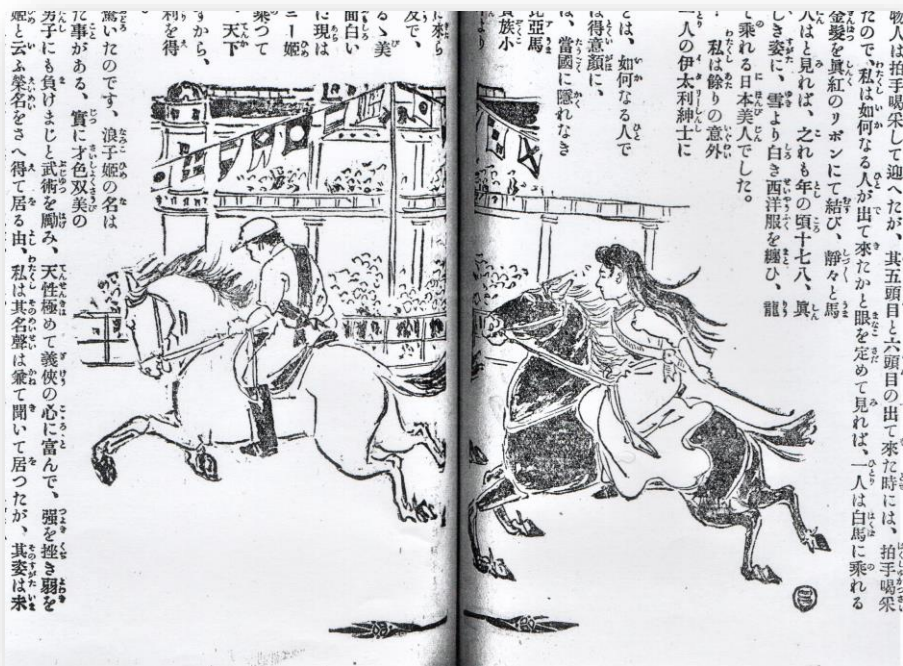 物人は拍手喝采して迎へたが、其五頭目と六頭目の出て來た時には、拍手喝采
たので、私は如何なる人が出て來たかと眼を定めて見れば、一人は白馬に乘れる
金髮を眞紅のリボンにて結び、靜々と馬
人はと見れば、之れも年の頃十七八、眞
しき姿に、雪より白き西洋服を纒ひ、龍
て乘れる日本美人でした。
私は餘りの意外
一人の伊太利紳士に
とは、如何なる人で
は得意顏に、
は、當國に隱れなき
比亞馬
貴族小
より
に來ら
友で、
るゝ美
面白い
に現は
ニー姫
乘つて
天下
すから、
利を得
驚いたのです、浪子姫の名は
た事がある、實に才色双美の
男子にも負けまじと武術を勵み、天性極めて義俠の心に富んで、强を挫き弱を
姫と云ふ榮名をさへ得て居る由、私は其名聲は兼て聞いて居つたが、其姿は未